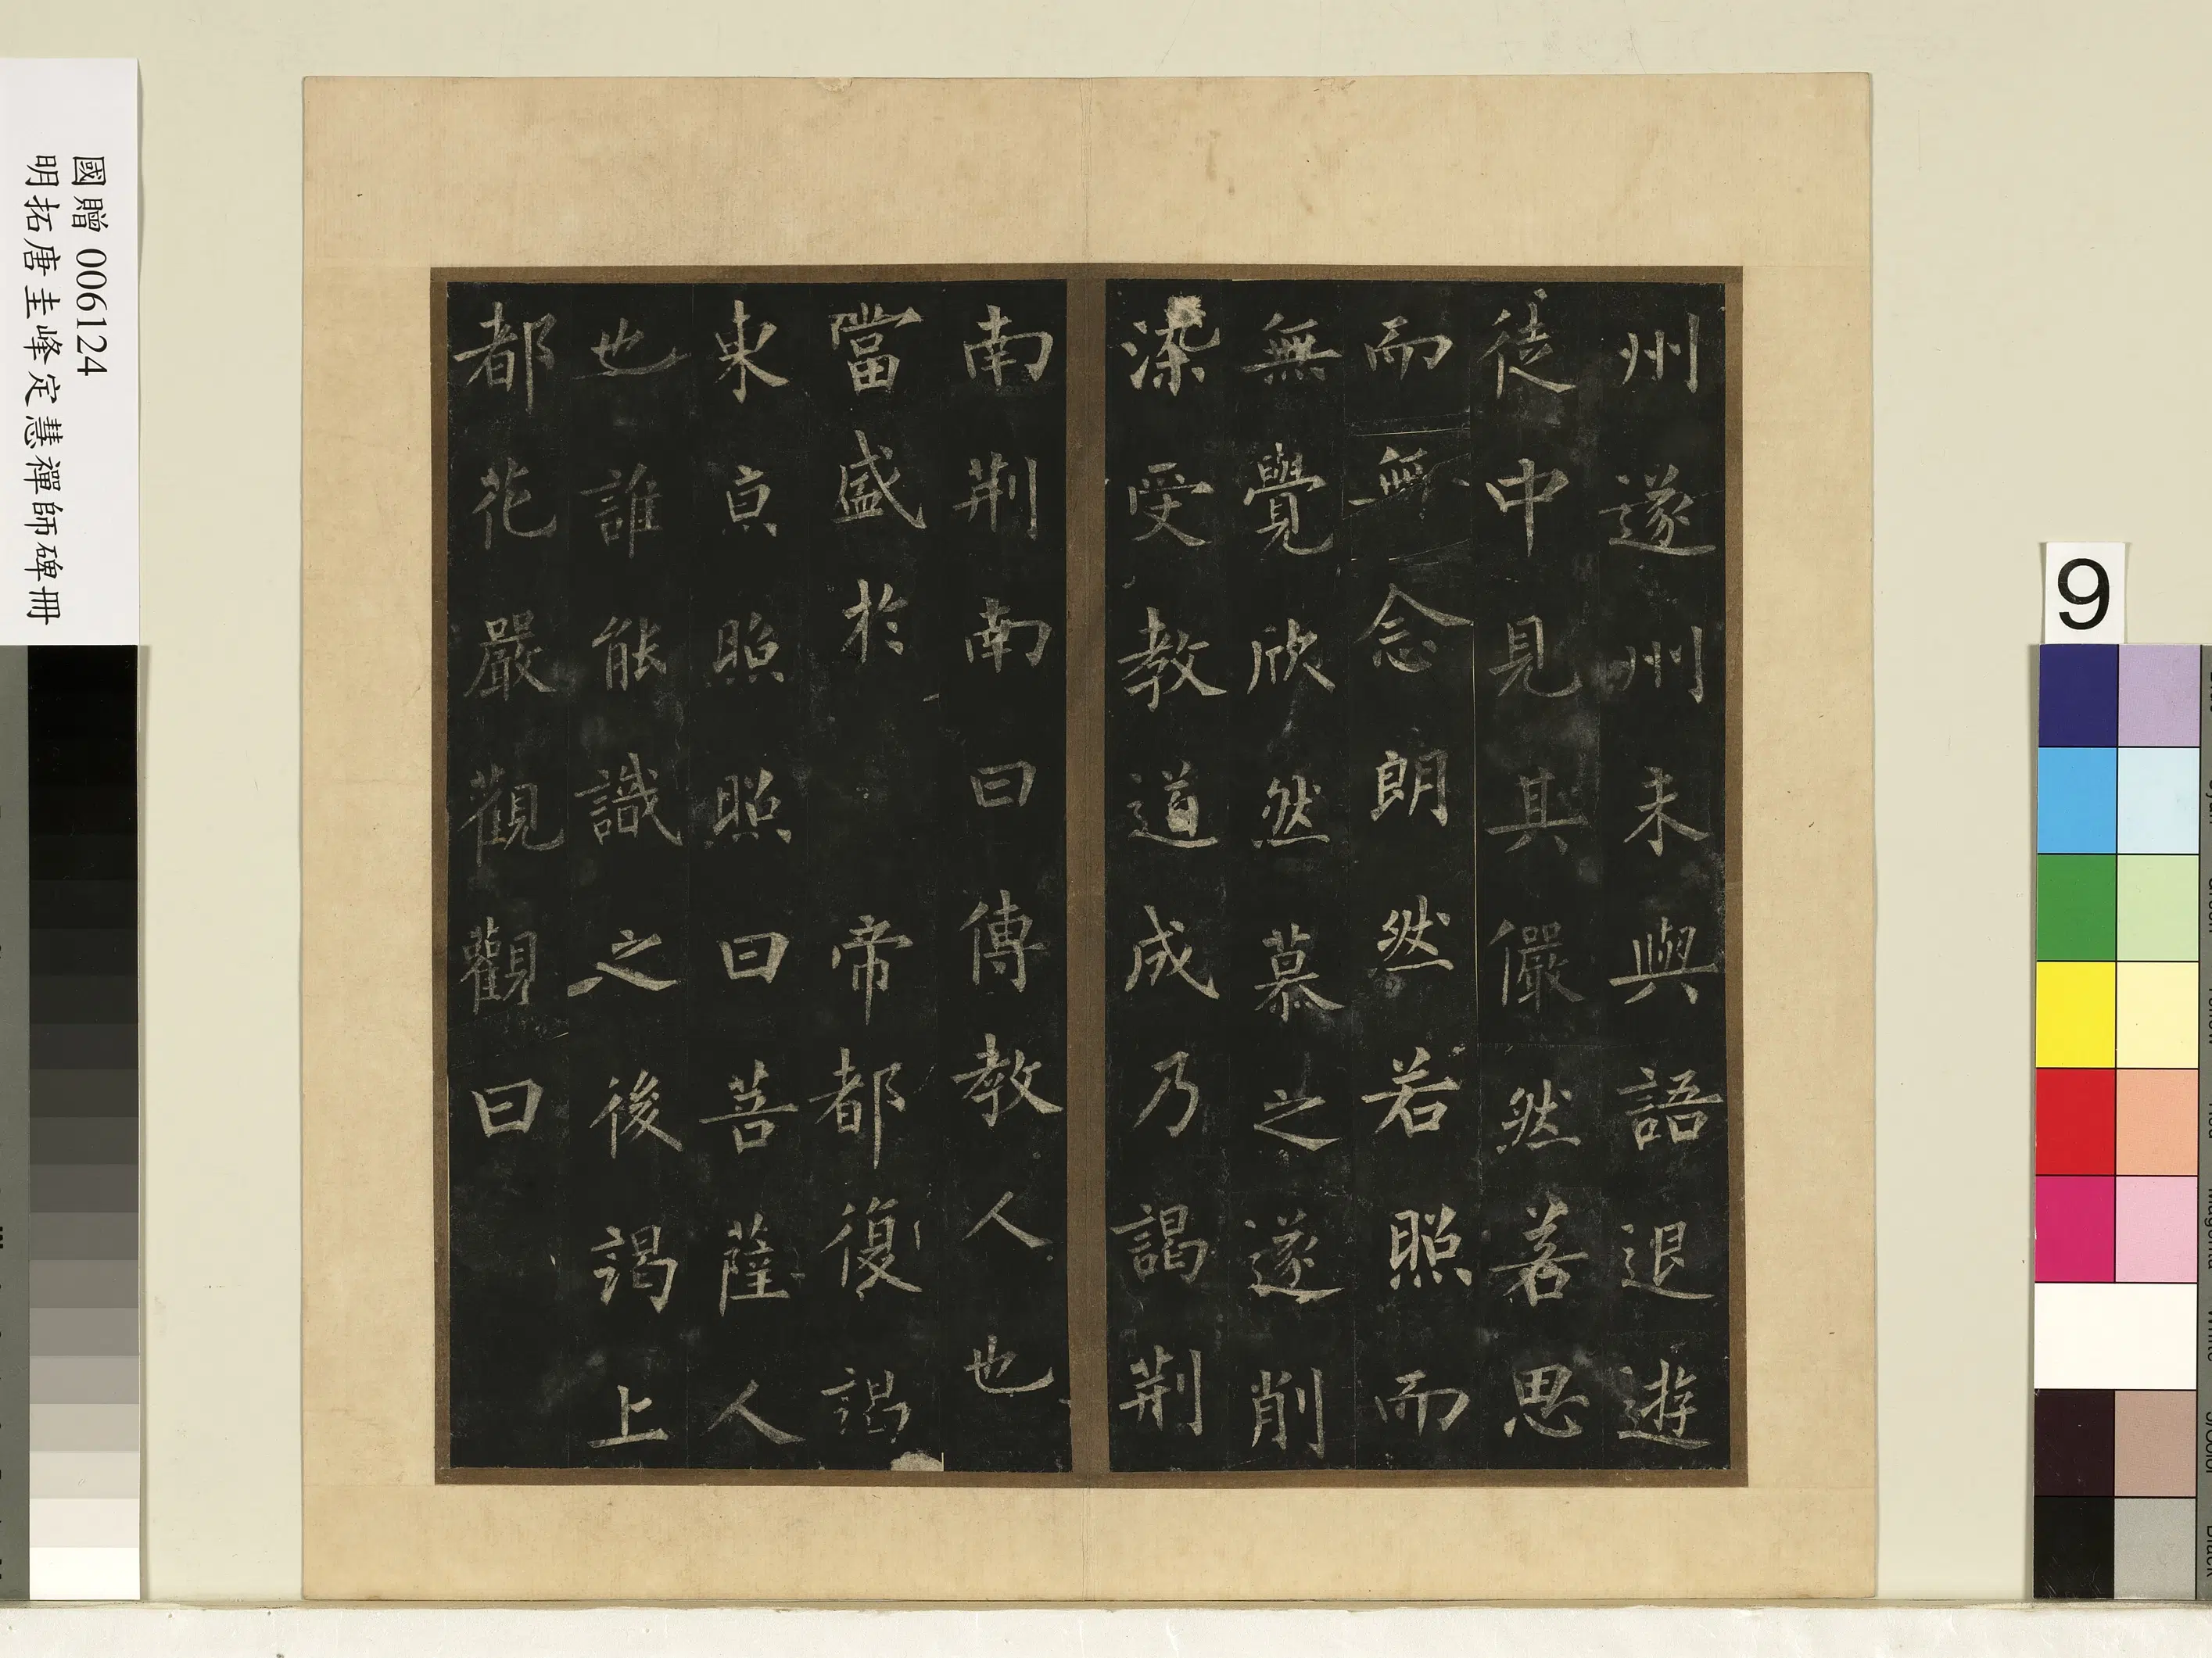 州遂州未與語退遊
徒中見其儼然若思
而無念朗然若照而
無覺欣然慕之遂削
染受教道成乃謁荆
南荆南曰傳教人也
當盛於帝都復謁
東京照照曰菩薩人
也誰能識之後謁上
都花嚴觀觀曰
國贈 006124
明拓唐圭峰定慧禪師碑冊
9